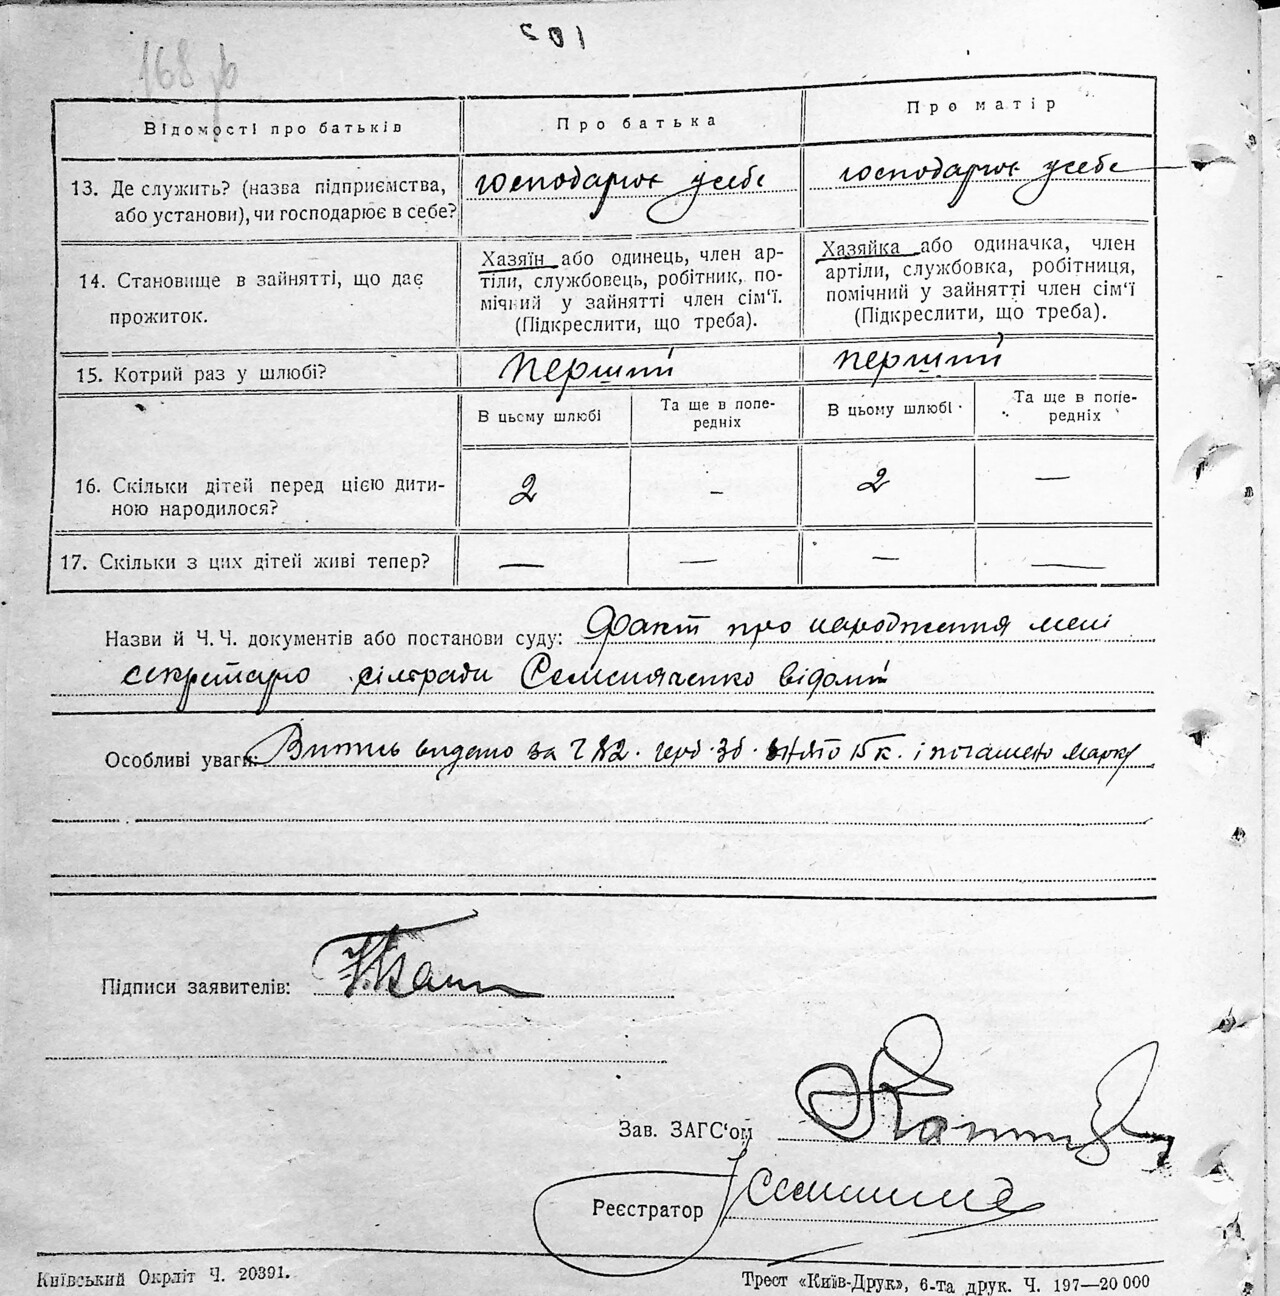 168 зв
Відомості про батьків
Про батька
Про матір
13. Де служить? (назва підприємства, або установи), чи господарює в себе?
господарює у себе
господарює у себе
14. Становище в зайнятті, що дає прожиток.
Хазяїн або одинець, член ар-
тіли, службовець, робітник, по-
мічний у зайнятті член сім'ї.
(Підкреслити, що треба).
Хазяйка або одиначка, член
артіли, службовка, робітниця,
помічний у зайнятті член сім'ї
(Підкреслити, що треба).
15. Котрий раз у шлюбі?
перший
перший
В цьому шлюбі
Та ще в попе-
редніх
В цьому шлюбі
Та ще в попе-
редніх
16. Скільки дітей перед цією дити-
ною народилося?
2 – 2 —
17. Скільки з цих дітей живі тепер?
— — — —
Назви й Ч.Ч. документів або постанови суду: Факт про народження мені
секретарю сілтради Семеняченко відомий
Особливі уваги: Витись видано за ч 82. герб. зб. знято 15 к. і погашено марку
Підписи заявителів:
Зав. ЗАГС'ом
Реєстратор
Київський Окрліт Ч. 20391.
Трест «Київ-Друк», 6-та друк. Ч. 197—20 000